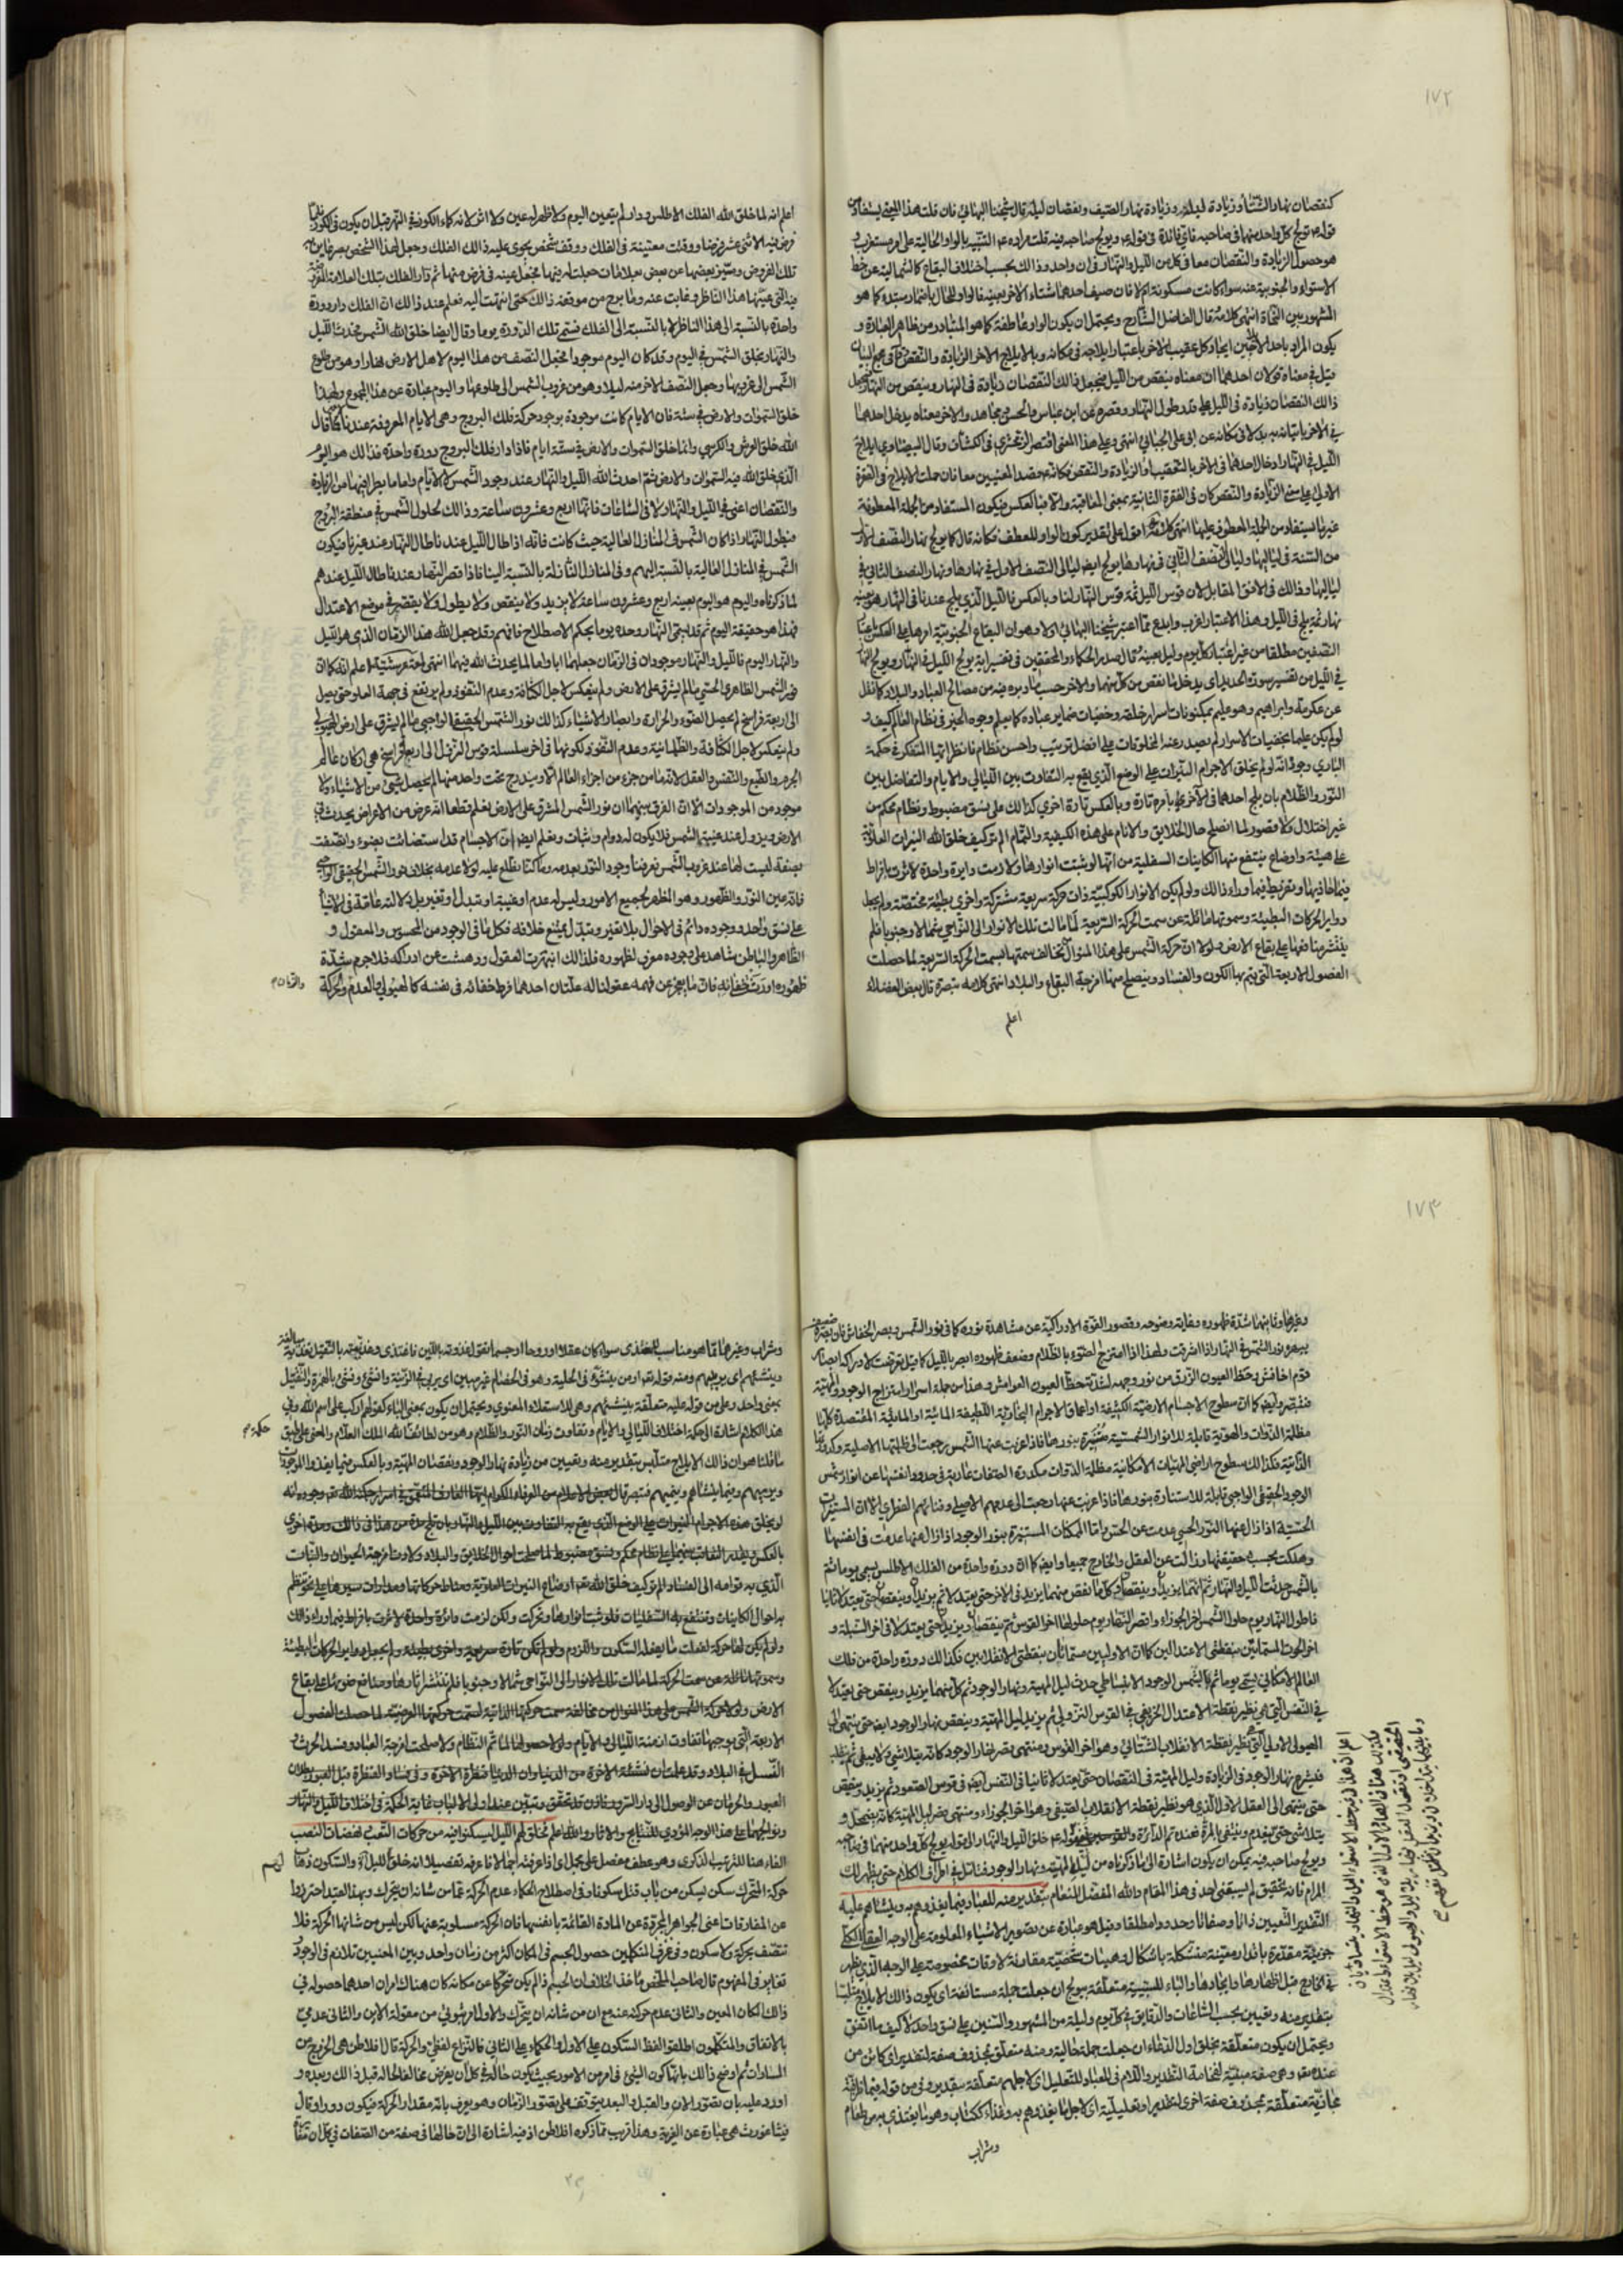 ١٧٢
كنقصان نهار الشتاء وزيادة ليله وزيادة نهار الصيف ونقصان ليله قال شيخنا البهائي فان قلت هذا المعنى يستفاد من
قوله يولج كل واحد منهما في صاحبه فاي فائدة في قوله ويولج صاحبه فيه قلت مراده التنبيه بالواو الحالية على امر مستغرب و
هو حصول الزيادة والنقصان معا في كل من الليل والنهار في ان واحد وذلك بحسب اختلاف البقاع كالشمالية عن خط
الاستواء والجنوبية عنه سواء كانت مسكونة ام لا فان صيف احدهما شتاء الاخر بعينه فالواو للحال باضمار مبتدء كما هو
المشهور بين النحاة انتهى كلامه قال الفاضل الشارح ويحتمل ان يكون الواو عاطفة كما هو المتبادر من ظاهر العبارة و
يكون المراد باحد الايلاجين ايجاد كل عقيب الاخر باعتبار ايلاجه في مكانه وبالايلاج الاخر الزيادة والنقص في مجمع البيان
قيل في معناه قولان احدهما ان معناه ينقص من الليل فيجعل ذلك النقصان زيادة في النهار وينقص من النهار فيجعل
ذلك النقصان زيادة في الليل على قدر طول النهار وقصره عن ابن عباس والحسن ومجاهد والاخر معناه يدخل احدهما
في الاخر باتيانه به بدلا في مكانه عن ابي علي الجبائي انتهى وعلى هذا المعنى اقتصر الزمخشري في الكشاف وقال البيضاوي ايلاج
الليل في النهار ادخال احدهما في الاخر بالتعقيب او الزيادة والنقص فكانه قصد المعنيين معا فان حملت الايلاج في الفقرة
الاولى على معنى الزيادة والنقص كان في الفقرة الثانية بمعنى المعاقبة والا فبالعكس فيكون المستفاد من الجملة المعطوفة
غير ما يستفاد من الجملة المعطوف عليها انتهى كلامه اقول على تقدير كون الواو للعطف فكانه قال كما يولج نهار النصف الاول
من السنة في لياليها وليالي النصف الثاني في نهارها يولج ايضا ليالي النصف الاول في نهارها ونهار النصف الثاني في
لياليها وذلك في الافق المقابل لان قوس الليل ثمة قوس النهار لنا وبالعكس فالليل الذي يلج عندنا في النهار هو بعينه
نهار ثمة يلج في الليل وهذا الاعتبار اغرب وابدع مما اعتبر شيخنا البهائي اولا وهو ان البقاع الجنوبية امرها على العكس باعتبار
النصفين مطلقا من غير اعتبار كل يوم وليل بعينه قال صدر الحكماء والمحققين في تفسير اية يولج الليل في النهار ويولج النهار
في الليل من تفسير سورة الحديد اي يدخل ما نقص من كل منهما في الاخر حسب ما دبره فيه من مصالح العباد والبلاد كما نقل
عن عكرمة وابراهيم وهو عليم بمكنونات اسرار خلقه وخفيات ضماير عباده كما يعلم وجوه الخير في نظام العالم كيف و
لو لم يكن عليما بخفيات الاسرار لم يصدر عنه المخلوقات على افضل ترتيب واحسن نظام فانظر ايها المتفكر في حكمة
الباري وجوده انه لو لم يخلق الاجرام النيرات على الوضع الذي يقع به التفاوت بين الليالي والايام والتفاضل بين
النور والظلام بان يلج احدهما في الاخرى بامره تارة وبالعكس تارة اخرى كذلك على نسق مضبوط ونظام محكم من
غير اختلال ولا قصور لما انصلح حال الخلايق والانام على هذه الكيفية والتمام الم تر كيف خلق الله النيرات العلوية
على هيئة واوضاع ينتفع منها الكاينات السفلية من انها لو ثبتت انوارها ولازمت دايرة واحدة لاثرت بافراط
فيما حاذيها وتفريط فيما وراء ذلك ولو لم يكن الانوار الكوكبية ذات حركة سريعة مشتركة واخرى بطيئة مختصة ولم يجعل
دواير الحركات البطيئة وسموتها مائلة عن سمت الحركة السريعة لما مالت تلك الانوار الى النواحي شمالا وجنوبا فلم
ينتشر منافعها على بقاع الارض ولولا ان حركة الشمس على هذا المنوال تخالف سمتها لسمت الحركة السريعة لما حصلت
الفصول الاربعة التي يتم بها الكون والفساد وينصلح منها امزجة البقاع والبلاد انتهى كلامه تبصرة قال بعض الفضلاء
اعلم
اعلم انه لما خلق الله الفلك الاطلس ودار لم يتعين اليوم ولا ظهر له عين ولا اثر لانه كماء الكوز في النهر قبل ان يكون في الكوز فلما
فرض فيه الاثني عشر فرضا ووقتت معينة في الفلك ووقف شخص يحوي عليه ذلك الفلك وجعل لهذا الشخص بصر عاين به
تلك الفروض وميز بعضها عن بعض بعلامات جعلت له فيها فجعل عينه في فرض منها ثم دار الفلك بتلك العلامة المفروضة
التي عينها هذا الناظر وغابت عنه وما برح من موقفه ذلك حتى انتهت اليه فعلم عند ذلك ان الفلك دار دورة
واحدة بالنسبة الى هذا الناظر لا بالنسبة الى الفلك فسمى تلك الدورة يوما وقال ايضا خلق الله الشمس فحدث الليل
والنهار بخلق الشمس في اليوم وقد كان اليوم موجودا فجعل النصف من هذا اليوم لاهل الارض نهارا وهو من طلوع
الشمس الى غروبها وجعل النصف الاخر منه ليلا وهو من غروب الشمس الى طلوعها واليوم عبارة عن هذا المجموع ولهذا
خلق السموات والارض في ستة فان الايام كانت موجودة بوجود حركة فلك البروج وهي الايام المعروفة عندنا كما قال
الله خلق العرش والكرسي وانما خلق السموات والارض في ستة ايام فاذا دار فلك البروج دورة واحدة فذلك هو اليوم
الذي خلق الله فيه السموات والارض ثم احدث الله الليل والنهار عند وجود الشمس لا الايام واما ما يطرأ فيها من الزيادة
والنقصان اعني في الليل والنهار لا في الساعات فانها اربع وعشرون ساعة وذلك لحلول الشمس في منطقة البروج
فيطول النهار اذا كان الشمس في المنازل العالية حيث كانت فانه اذا طال الليل عندنا طال النهار عند غيرنا فيكون
الشمس في المنازل العالية بالنسبة اليهم وفي المنازل النازلة بالنسبة الينا فاذا قصر النهار عندنا طال الليل عندهم
لما ذكرناه واليوم هو اليوم بعينه اربع وعشرون ساعة لا يزيد ولا ينقص ولا يطول ولا يقصر في موضع الاعتدال
فهذا هو حقيقة اليوم ثم قد يسمى النهار وحده يوما بحكم الاصطلاح فافهم وقد جعل الله هذا الزمان الذي هو الليل
والنهار اليوم فالليل والنهار موجودان في الزمان جعلهما ابا واما لما يحدث الله فيهما انتهى اعلم انه كما ان
نور الشمس الظاهري الحسي ما لم يشرق على الارض ولم ينعكس لاجل الكثافة وعدم النفوذ ولم يرتفع في جهة العلو حتى يصل
الى اربعة فراسخ لم يحصل الضوء والحرارة وابصار الاشياء كذلك نور الشمس الحقيقي الواجبي ما لم يشرق على ارض الهيولى
ولم ينعكس لاجل الكثافة والظلمانية وعدم النفوذ لكونها في اخر سلسلة قوس النزول الى اربع فراسخ هي اركان عالم
الجرم والطبع والنفس والعقل لانه ما من جزء من اجزاء العالم الا ويندرج تحت واحد منها لم يحصل شيئ من الاشياء ولا
موجود من الموجودات الا ان الفرق بينهما ان نور الشمس المشرق على الارض نعلم قطعا انه عرض من الاعراض يحدث في
الارض ويزول عند غيبة الشمس فلا يكون له دوام وثبات ونعلم ايضا ان الاجسام قد استضائت بضوء واتصفت
بصفة ليست لها عند غروب الشمس فعرفنا وجود النور بعدمه وما كنا نطلع عليه لولا عدمه بخلاف نور الشمس الحقيقي الواجبي
فانه عين النور والظهور وهو المظهر لجميع الامور وليس له عدم او غيبة او تبدل او تغير بل دلالته عامة في الاشياء
على نسق واحد ووجوده دائم في الاحوال بلا تغير وتبدل يمتنع خلافه فكل ما في الوجود من المحسوس والمعقول و
الظاهر والباطن شاهد على وجوده معرف لظهوره فلذلك انبهرت العقول ودهشت عن ادراكه فلا جرم شدة
ظهوره اورثت خفائه فان ما يعجز عن فهمه عقولنا له علتان احدهما فرط خفائه في نفسه كالهيولى والعدم والحركة
والزمان
١٧٣
وغيرها وثانيهما شدة ظهوره وغاية وضوحه وقصور القوة الادراكية عن مشاهدة نوره كما في نور الشمس وبصر الخفاش فان بصره ضعيف
يبهره نور الشمس في النهار اذا اشرقت ولهذا اذا امتزج الضوء بالظلام وضعف ظهوره ابصر بالليل كما قيل تعرضت لادراكه ابصار
قوم اخافش وحظ العيون الزرق من نور وجهه لشدته حظ العيون العوامش وهذا من جملة اسرار امتزاج الوجود والمهية
فتبصر وايضا كما ان سطوح الاجسام الارضية الكثيفة او اعماق الاجرام البخارية اللطيفة المائية او المائية المقتصدة كلها
مظلمة الذوات والهوية قابلة للانوار الشمسية متنورة بنورها فاذا غربت عنها الشمس رجعت الى ظلمتها الاصلية وكدورتها
الذاتية فكذلك سطوح اراضي المهيات الامكانية مظلمة الذوات مكدرة الصفات عارية في حدود انفسها عن انوار شمس
الوجود الحقيقي الواجبي قابلة للاستنارة بنورها فاذا غربت عنها رجعت الى عدمهم الاصلي وفنائهم الفطري الا ان المستنيرات
الحسية اذا زال عنها النور الحسي عدمت عن الحس واما الممكنات المستنيرة بنور الوجود اذا زال عنها عدمت في انفسها
وهلكت بحسب حقيقتها وزالت عن العقل والخارج جميعا وايضا كما ان دورة واحدة من الفلك الاطلس يسمى يوما ثم
بالشمس حدث الليل والنهار ثم انهما يزيدان وينقصان وكل ما نقص منهما يزيد في الاخر حتى يعتدلا ثم يزيدان وينقصان حتى يعتدلا ثانيا
فاطول النهار يوم حلول الشمس اخر الجوزاء واقصر النهار يوم حلولها اخر القوس ثم ينقصان ويزيدان حتى يعتدلا في اخر السنبلة و
اخر الحوت المسماتين بنقطتي الاعتدالين كما ان الاوليين مسماتان بنقطتي الانقلابين فكذلك دورة واحدة من فلك
العالم الامكاني يسمى يوما ثم بالشمس الوجود الانبساطي حدث ليل المهية ونهار الوجود ثم كل منهما يزيد وينقص حتى يعتدلا
في النفس التي هي نظير نقطة الاعتدال الخريفي في القوس النزولي ثم يزيد ليل المهية وينقص نهار الوجود ايضا حتى ينتهي الى
الهيولى الاولى التي هي نظير نقطة الانقلاب الشتائي وهو اخر القوس ومنتهى قصر نهار الوجود كانه يتلاشى لا يبقى ثم
فيشرع نهار الوجود في الزيادة وليل المهية في النقصان حتى يعتدلا ثانيا في النفس ايضا في قوس الصعود ثم يزيد وينقص
حتى ينتهي الى العقل الاول الذي هو نظير نقطة الانقلاب الصيفي وهو اخر الجوزاء ومنتهى قصر ليل المهية كانه يضمحل و
يتلاشى حتى ينعدم وينتفي بالمرة فعنده تم الدائرة والقوسين فقوله خلق الليل والنهار الى قوله يولج كل واحد منهما في صاحبه
ويولج صاحبه فيه يمكن ان يكون اشارة الى ما ذكرناه من ليل المهية ونهار الوجود فتأمل في اطراف الكلام حتى يظهر لك
المرام فانه تحقيق لم يسبقني احد في هذا المقام والله المفضل المنعام بتقدير منه للعباد فيما يغذوهم به وينشأهم عليه
التقدير التعيين ذاتا وصفاتا وحدودا مطلقا وقيل هو عبارة عن تصوير الاشياء المعلومة على الوجه العقلي الكلي
جزئية مقدرة باقدار معينة متشكلة باشكال وهيئات شخصية مقارنة لاوقات مخصوصة على الوجه الذي يظهر
في الخارج قبل اظهارها وايجادها والباء للسببية متعلقة بيولج ان جعلت جملة مستانفة اي يكون ذلك الايلاج متلبسا
بتقدير منه وتعيين بحسب الساعات والدقايق في كل يوم وليلة من الشهور والسنين على نسق واحد لا كيف ما اتفق
ويحتمل ان يكون متعلقة بخلق اول الدعاء ان جعلت جملة حالية ومنه متعلق بمحذوف صفة لتقدير اي كائن من
عنده وهي صفة مبينة لفخامة التقدير واللام في للعباد للتعليل اي لاجلهم متعلقة بتقدير وفي من قوله فيما ظرفية
مجازية متعلقة بمحذوف صفة اخرى لتقدير او تعليلية اي لاجل ما يغذوهم به وغذاء ككتاب وهو ما يغتذى به من طعام
وشراب
وشراب وغيرهما مما هو مناسب للمغتذي سواء كان عقلا او روحا او جسما تقول غذوته باللبن فاغتذى وغذيته بالتثقيل تغذية مبالغة
وينشئهم اي يربيهم ومنه قوله تعالى او من ينشؤ في الحلية وهو في الخصام غير مبين اي يربى في الزينة وانشئ ونشئ بالهمزة والتثقيل
بمعنى واحد وعلى من قوله عليه متعلقة بينشئهم وهي للاستعلاء المعنوي ويحتمل ان يكون بمعنى الباء كقولهم اركب على اسم الله وفي
هذا الكلام اشارة الى حكمة اختلاف الليالي والايام وتفاوت زمان النور والظلام وهو من لطائف الله الملك العلام والمعنى على طبق
حكمة
ما قلنا هو ان ذلك الايلاج متلبس بتقدير منه وتعيين من زيادة نهار الوجود ونقصان المهية وبالعكس فيما يغذو الموجودات
ويربيهم وفيما ينشأهم وينميهم فتبصر قال بعض الاعلام من العرفاء الكرام ايها العارف المتعمق في اسرار حكمة الله تعالى وجوده انه
لو لم يخلق هذه الاجرام النيرات على الوضع الذي يقع به التفاوت بين الليل والنهار بان يلج هذا من هذا في ذلك وهذه اخرى
بالعكس ويقدر التعاقب بينهما على نظام محكم ونسق مضبوط لما صلحت احوال الخلايق والبلاد ولا دامت امزجة الحيوان والنبات
الذي به قوامه الى الفساد الم تر كيف خلق الله تعالى اوضاع النيرات العلوية ومناط حركاتها ومدارات سيرها على نحو ينتظم
به احوال الكاينات وتنتفع به السفليات فلو ثبت انوارها وتحركت ولكن لزمت دائرة واحدة لاثرت بافراط فيما وراء ذلك
ولو لم يكن لها حركة لفعلت ما يفعله السكون واللزوم ولو لم تكن تارة سريعة واخرى بطيئة ولم يجعل دواير الحركات البطيئة
وسموتها مائلة عن سمت الحركة لما مالت تلك الانوار الى النواحي شمالا وجنوبا فلم تنتشر اثارها ومنافع ضوئها على بقاع
الارض ولولا حركة الشمس على هذا المنوال من مخالفة سمت حركتها الذاتية لسمت حركتها العرضية لما حصلت الفصول
الاربعة التي بوجهها تفاوت ازمنة الليالي والايام ولولا حصولها لما تم النظام ولا صلحت امزجة العباد وفسد الحرث و
النسل في البلاد وقد علمت ان نشئة الاخرة من الدنيا وان الدنيا قنطرة الاخرة وفي فساد القنطرة قبل العبور بطلان
العبور والحرمان عن الوصول الى دار السرور فاذن قد تحقق وتبين عند اولي الالباب غاية الحكمة في اختلاف الليل والنهار
وتوالجهما على هذا الوجه المؤدي للنتايج والاثار والله اعلم فخلق لهم الليل ليسكنوا فيه من حركات التعب ونهضات النصب
الفاء هنا للترتيب الذكري وهو عطف مفصل على مجمل اي اذا عرفته اجمالا فاعرفه تفصيلا انه خلق لهم الليل اه والسكون ذهاب
لهم
حركة المتحرك سكن يسكن من باب قتل سكونا وفي اصطلاح الحكماء عدم الحركة عما من شانه ان يتحرك وبهذا القيد احترزوا
عن المفارقات اعني الجواهر المجردة عن المادة القائمة بانفسها فان الحركة مسلوبة عنها لكن ليس من شانها الحركة فلا
تتصف بحركة ولا سكون وفي عرف المتكلمين حصول الجسم في المكان اكثر من زمان واحد وبين المعنيين تلازم في الوجود
تغاير في المفهوم قال صاحب الملخص مأخذ الخلاف ان الجسم اذا لم يكن متحركا عن مكانه كان هناك امران احدهما حصوله في
ذلك المكان المعين والثاني عدم حركته عنه مع ان من شانه ان يتحرك والاول امر ثبوتي من مقولة الاين والثاني عدمي
بالاتفاق والمتكلمون اطلقوا لفظ السكون على الاول والحكماء على الثاني فالنزاع لفظي والحركة قال افلاطن هي الخروج من
المساوات ثم اوضح ذلك بانها كون الشيئ في امر من الامور بحيث يكون حاله في كل ان يفرض مخالفا لحاله قبل ذلك وبعده و
اورد عليه بان تصور الان والقبل والبعد يتوقف على تصور الزمان وهو يعرف بانه مقدار الحركة فيكون دورا وقال
فيثاغورث هي عبارة عن الغيرية وهذا قريب مما ذكره افلاطن اذ فيه اشارة الى ان حالها في صفة من الصفات في كل ان
٢٣